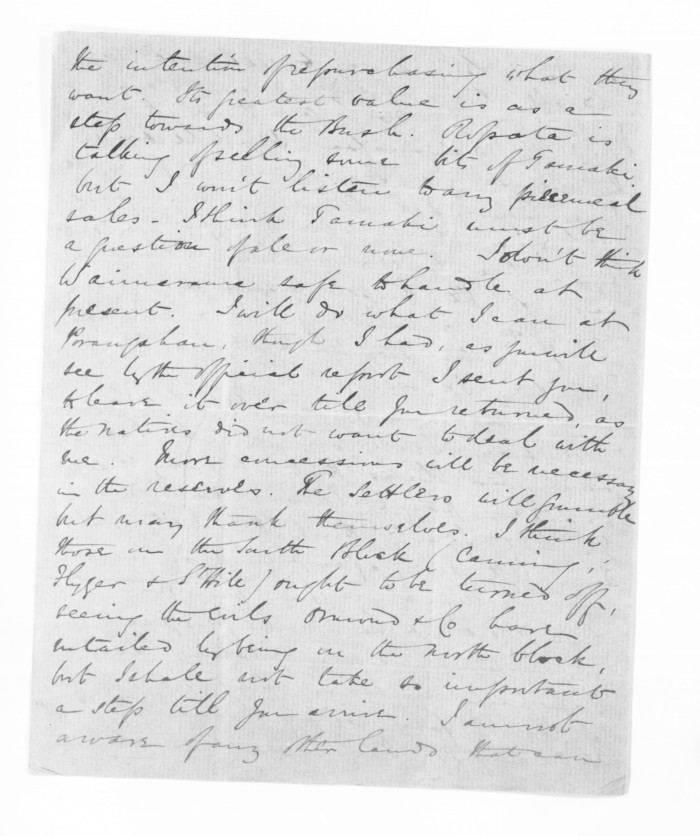 the intention of repurchasing what they
want. Its greatest value is as a
step towards the Bush. Ropata is
talking of selling some bits of Tamaki
but I won't listen to any piecemeal
sales - I think Tamaki must be
a question of all or none. I don't think
Waimarama safe to handle at
present. I will do what I can at
Porangahau, though I had, as you will
see by the official report I sent you,
to leave it over till you returned, as
the natives did not want to deal with
me. More concessions will be necessary
in the reserves. The Settlers will grumble
but may thank themselves. I think
those on the South Block (Canning,
& St Hill) ought to be turned off,
seeing the evils Ormond & Co have
entailed by being on the north block,
but I shall not take so important
a step till you arrive. I am not
aware of any other lands that can